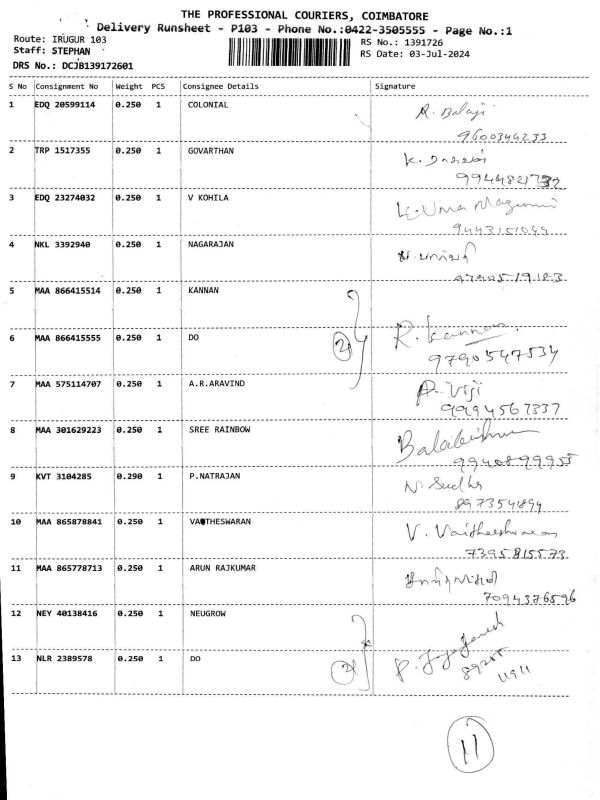 THE PROFESSIONAL COURIERS, COIMBATORE
Delivery Runsheet - P103 - Phone No.:0422-3505555 - Page No.:1
Route: IRUGUR 103
RS No.: 1391726
Staff: STEPHAN
RS Date: 03-Jul-2024
DRS No.: DCJB139172601
S No Consignment No Weight PCS Consignee Details Signature
1 EDQ 20599114 0.250 1 COLONIAL R. Balaji
9600344233
2 TRP 1517355 0.250 1 GOVARTHAN K.
9944821732
3 EDQ 23274032 0.250 1 V KOHILA K. Uma
9443151049
4 NKL 3392940 0.250 1 NAGARAJAN
9790519183
5 MAA 866415514 0.250 1 KANNAN
6 MAA 866415555 0.250 1 DO 2 R. Kannan
9790547534
7 MAA 575114707 0.250 1 A.R.ARAVIND P. Viji
9994567337
8 MAA 301629223 0.250 1 SREE RAINBOW Balakrishnan
9940899955
9 KVT 3104285 0.290 1 P.NATRAJAN N. Sudha
8973541894
10 MAA 865878841 0.250 1 VAITHESWARAN V. Vaitheeshwaran
7395815573
11 MAA 865778713 0.250 1 ARUN RAJKUMAR
7094376596
12 NEY 40138416 0.250 1 NEUGROW
13 NLR 2389578 0.250 1 DO 2 P. Jayaganesh
89255
11911
11